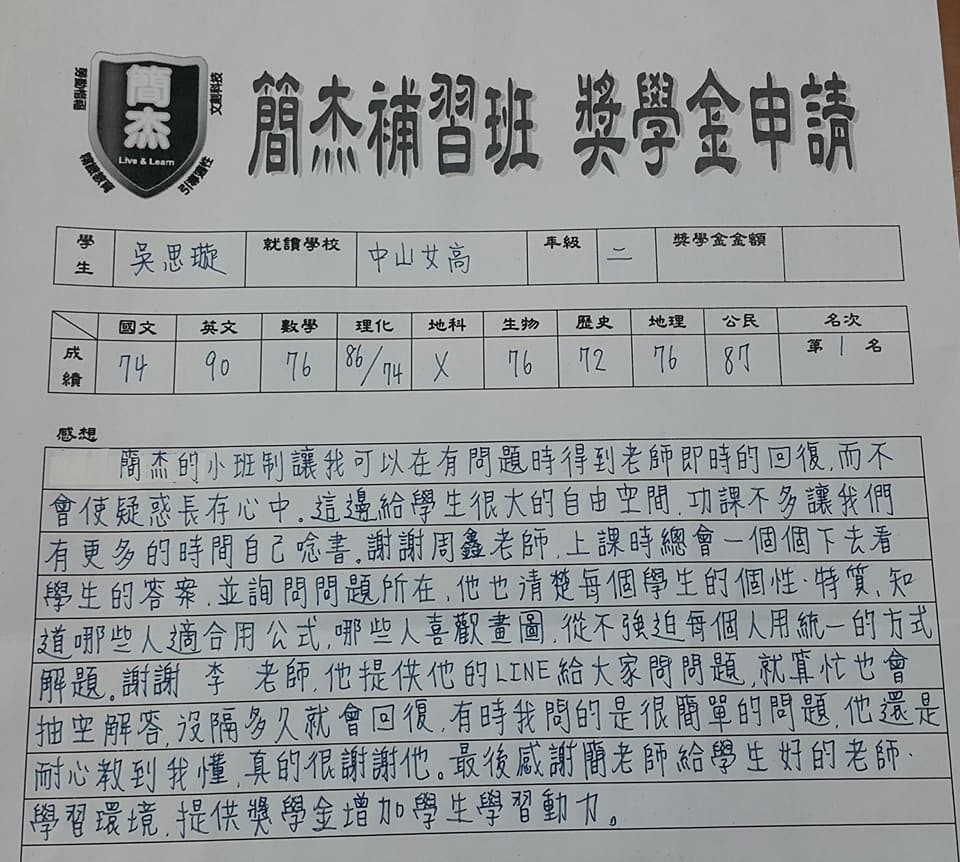 簡杰
Live & Learn
文創科技
引導適性
簡杰補習班 獎學金申請
學生 吳思璇 就讀學校 中山女高 年級 二 獎學金金額
國文 英文 數學 理化 地科 生物 歷史 地理 公民 名次
成績 74 90 76 86/74 X 76 72 76 87 第1名
感想
簡杰的小班制讓我可以在有問題時得到老師即時的回復,而不
會使疑惑長存心中。這邊給學生很大的自由空間,功課不多讓我們
有更多的時間自己唸書。謝謝周鑫老師,上課時總會一個個下去看
學生的答案,並詢問問題所在,他也清楚每個學生的個性、特質,知
道哪些人適合用公式,哪些人喜歡畫圖,從不強迫每個人用統一的方式
解題。謝謝 李 老師,他提供他的LINE給大家問問題,就算忙也會
抽空解答,沒隔多久就會回復,有時我問的是很簡單的問題,他還是
耐心教到我懂,真的很謝謝他。最後感謝簡老師給學生好的老師、
學習環境,提供獎學金增加學生學習動力。